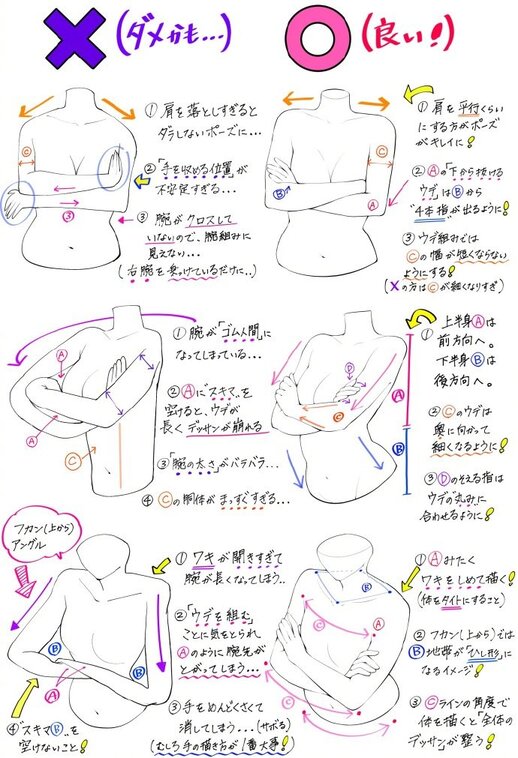 (ダメかも...)
(良い!)
① 肩を落としすぎると
ダラしないポーズに...
② 「手を収める位置」が
不安定すぎる...
③ 腕がクロスして
いないので、腕組みに
見えない...
(右腕を乗っけているだけに..)
C
③
① 肩を平行くらい
にする方がポーズ
がキレイに!
② Aの「下から抜ける
ウデ」はBから
“4本指”が出るように!
③ ウデ組みでは
Cの幅が短くならない
ようにする!
(Xの方はCが細くなりすぎ)
C
B
A
① 腕が「ゴム人間」に
なってしまっている...
② Aに“スキマ”を
空けると、ウデが
長くデッサンが崩れる
③ 「腕の太さ」がバラバラ...
④ Cの胴体がまっすぐすぎる...
A
A
C
① 上半身Aは
前方向へ。
下半身Bは
後方向へ。
② Cのウデは
奥に向かって
細くなるように!
③ Dのそえる指は
ウデの丸みに
合わせるように!
D
C
A
B
フカン(上から)
アングル
① ワキが開きすぎて
腕が長くなってしまう..
② 「ウデを組む」
ことに気をとられ
Aのように腕先が
とがってしまう...
③ 手をめんどくさくて
消してしまう...(サボる)
(むしろ手の描き方が1番大事!)
④ “スキマB”を
空けないこと!
B
B
A
① Aみたく
ワキをしめて描く!
(体をタイトにすること)
② フカン(上から)では
B地帯が「ひし形」に
なるイメージ!
③ Cラインの角度で
体を描くと「全体の
デッサン」が整う!
B
A
C
C